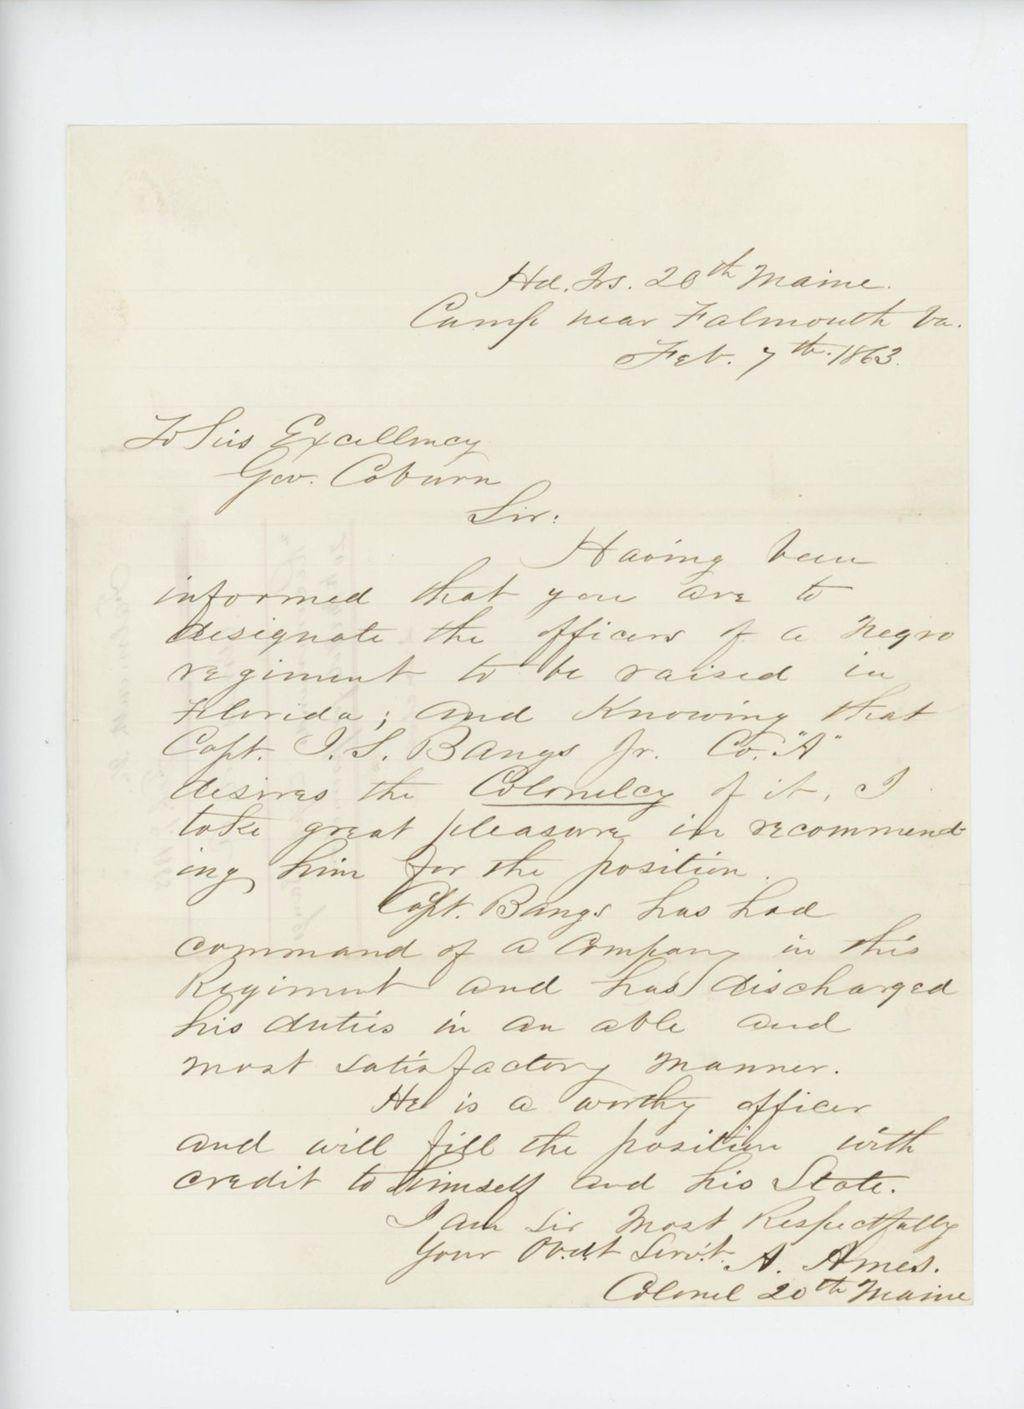 Hd. Qrs. 20th Maine.
Camp near Falmouth Va.
Feb. 7th. 1863.
To His Excellency
Gov. Coburn
Sir:
Having been
informed that you are to
designate the officers of a Negro
regiment to be raised in
Florida; and knowing that
Capt. I. S. Bangs Jr. Co. "A"
desires the Colonelcy of it, I
take great pleasure in recommend-
ing him for the position.
Capt. Bangs has had
command of a Company in this
Regiment and has discharged
his duties in an able and
most satisfactory manner.
He is a worthy officer
and will fill the position with
credit to himself and his State.
I am Sir Most Respectfully
Your Obdt Servt. A. Ames.
Colonel 20th Maine